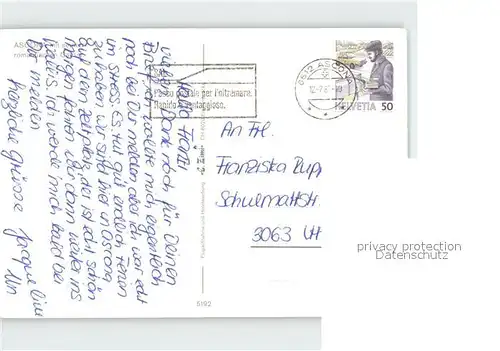 Hallo Franzi
Vielen Dank noch für Deinen
Brief, ich wollte mich eigentlich
noch bei Dir melden aber ich war echt
im Stress. Es tut gut endlich Ferien
zu haben wir sind hier in Ascona
auf dem Zeltplatz, der ist echt schön
Morgen fahren wir dann weiter ins
ich werde mich bald bei
Dir melden
Herzliche Grüsse Jacqueline
ASCONA
6612 ASCONA
Pacco postale per l'oltremare.
Rapido e vantaggioso.
HELVETIA 50
An Frl.
Franziska Rupp
Schulmattstr.
3063
5192
privacy protection
Datenschutz